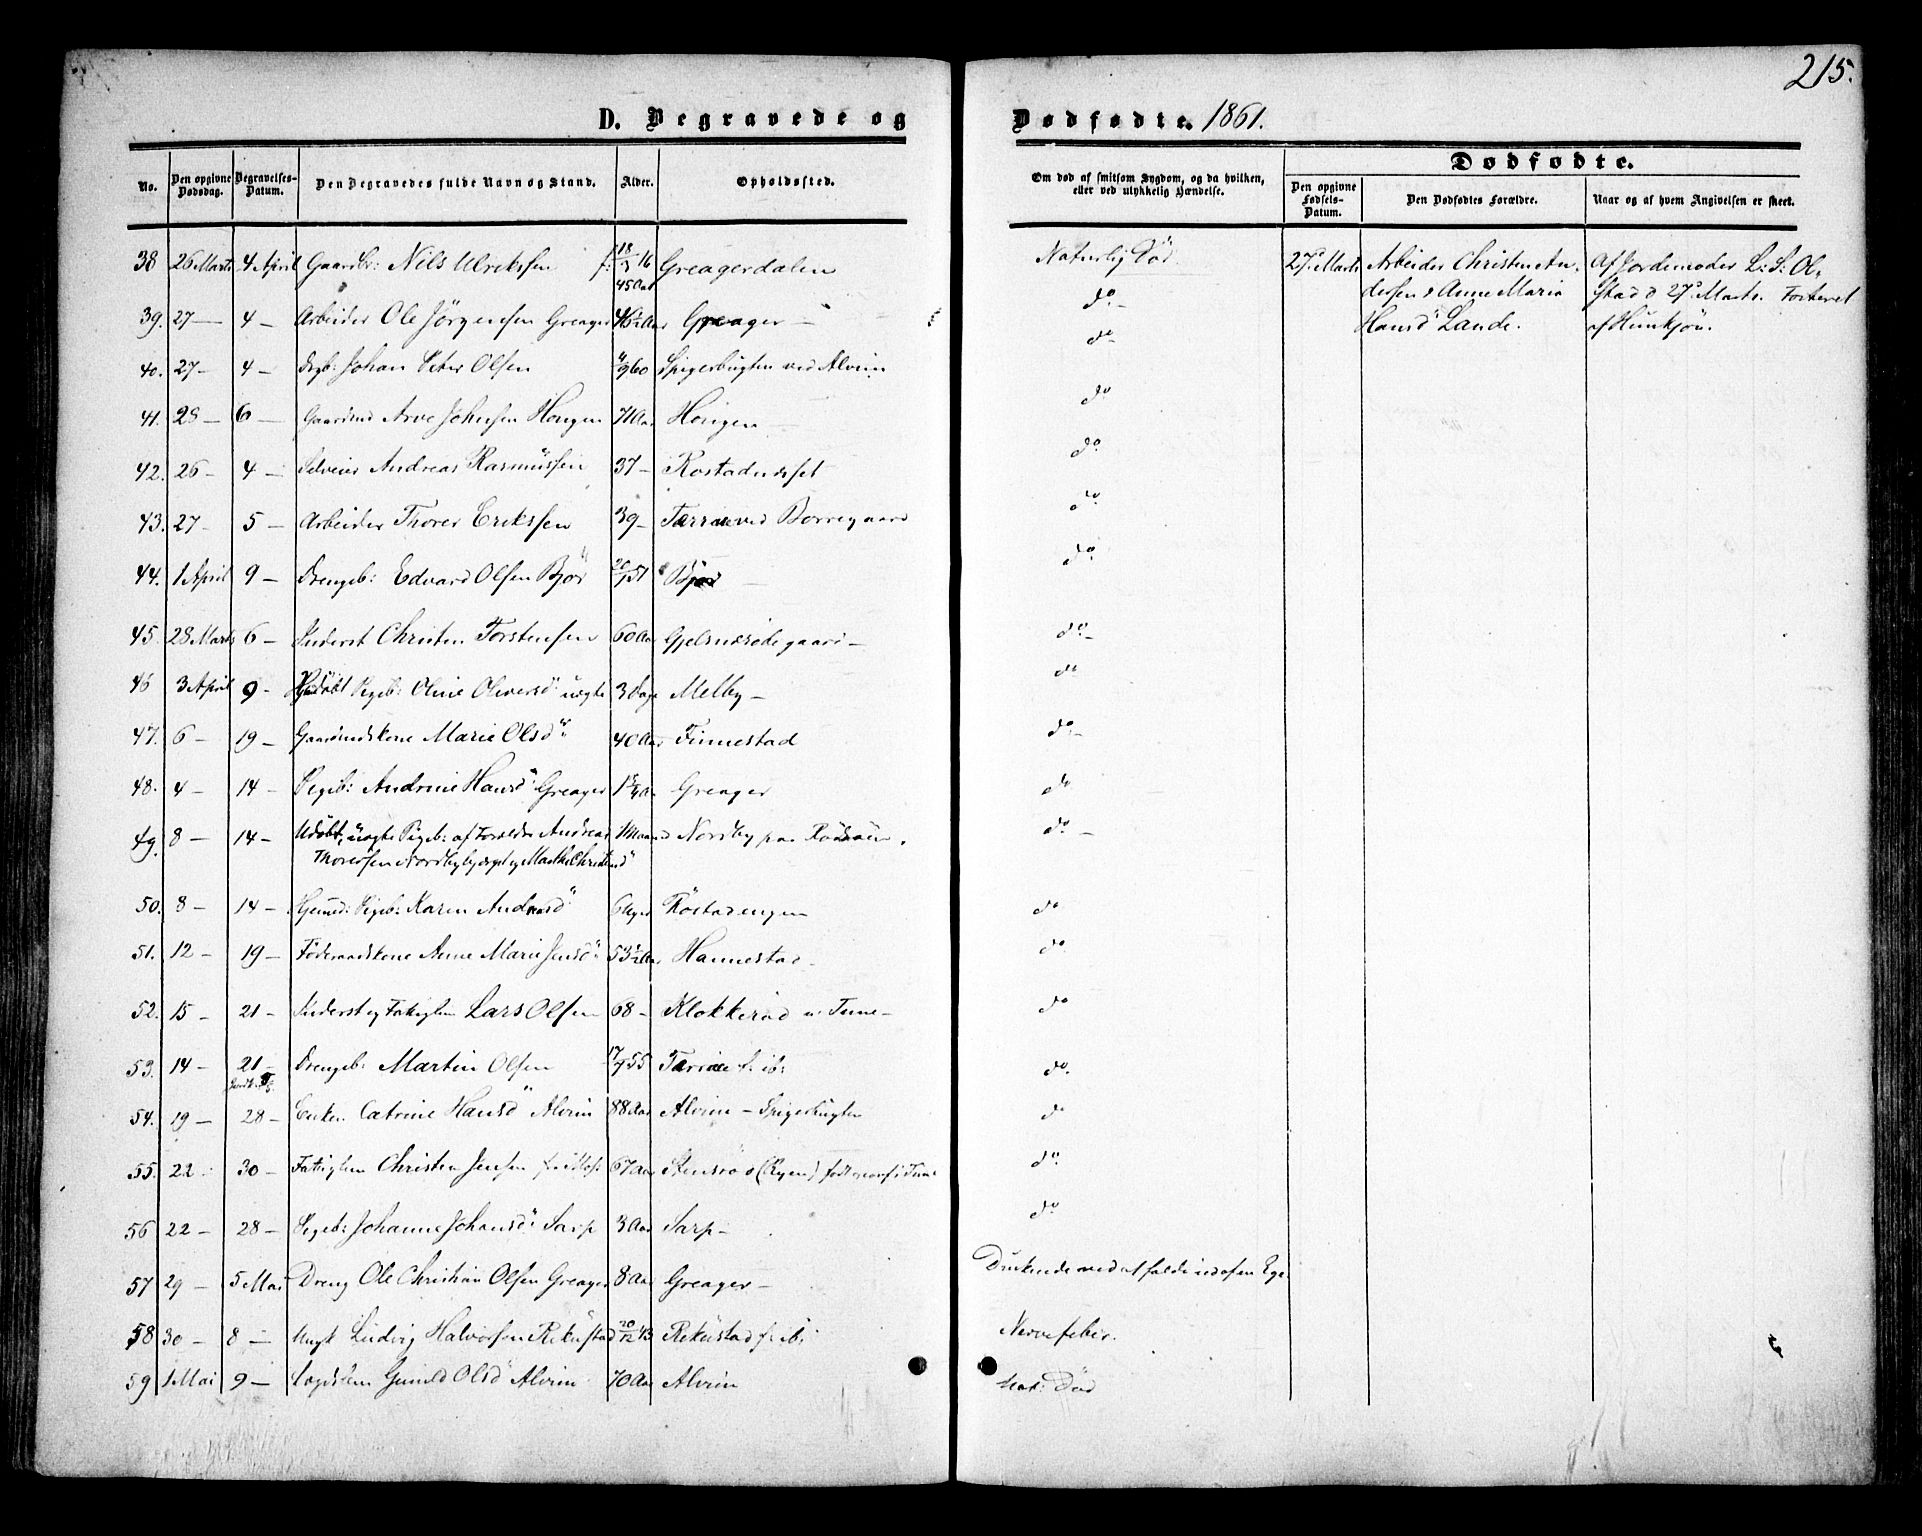 215.
D. Begravede og Dødfødte. 1861.
No. Den opgivne Dødsdag. Begravelses-Datum. Den Begravedes fulde Navn og Stand. Alder. Opholdssted. Om død af smitsom Sygdom, og da hvilken, eller ved ulykkelig Hændelse. Dødfødte.
Den opgivne Fødsels-Datum. Den Dødfødtes Forældre. Naar og af hvem Angivelsen er skeet.
38 26 Marts 4 April Gaardbr: Nils Ulriksen f: 18/3 16 45 Aar Greagerdalen Naturlig Død. 27de Marts Arbeider Christen An-
dersen & Anne Maria
Hansd Lande.
Af Jordemoder L: S: Ol-
stad d 27de Marts.
39. 27 — 4 — Arbeider Ole Jörgensen Greager 46½ Aar Greager — do —
40. 27 — 4 — Drgb: Johan Peter Olsen 4/9 60 Spigerbugten ved Alvim do
41. 28 — 6 — Gaardmd Arve Johnsen Hongen 71 Aar Hongen do
42. 26 — 4 — Selveier Andreas Rasmüssen 37 — do
43. 27 — 5 — Arbeider Thorer Eriksen 39 — ved Borregaard do
44. 1 April 9 — Drengeb: Edvard Olsen Björ 51 Bjør do
45. 28 Marts 6 — Inderst Christen Torstensen 60 Aar Gjelsnesödegaard — do —
46 3 April 9 — Hjdöbt Pigeb: Oline Oliversd uægte 3 Dage Melby — do
47. 6 — 19 — Gaardmdskone Marie Olsd 40 Aar Finnestad do —
48. 4 — 14 — Pigeb: Andrine Hansd Greager Greager do
49. 8 — 14 — Udöbt, uægte Pigeb: af Forældre Andreas 1 Maaned Nordby paa do —
Thoresen Nordbybjerget og Marthe Christensd
50. 8 — 14 — Hjemed: Pigeb: Karen Andreasd 6 Uger Röstadengen do
51. 12 — 19 — Föderaadskone Anne Marie Jensd 53½ Aar Hannestad — do
52. 15 — 21 — Inderst og Fattiglem Lars Olsen 68 — Klokkeröd i Tune — do
53. 14 — 21 — Drengeb: Martin Olsen 55 f: ib: do.
54. 19 — 28 — Enken Catrine Hansd Alvim 88 Aar Alvim — Spigerbugten do
55. 22 30 — Fattiglem Christen Jensen 67 Aar Stensröd (Rygen) do.
56 22 — 28 — Pigeb: Johanne Johansd Sarp 3 Aar Sarp — do
57 29 — 5 Mai Dreng Ole Christian Olsen Greager 8 Aar Greager — Druknede ved at falde ned af en Ege.
58 30 — 8 — Ungk Ludvig Halvorsen Rekustad 20/12 43 Rekustad f: ib: Nervefeber.
59 1 Mai 9 — Lægdslem Gunild Olsd Alvim 70 Aar Alvim Nat: Död